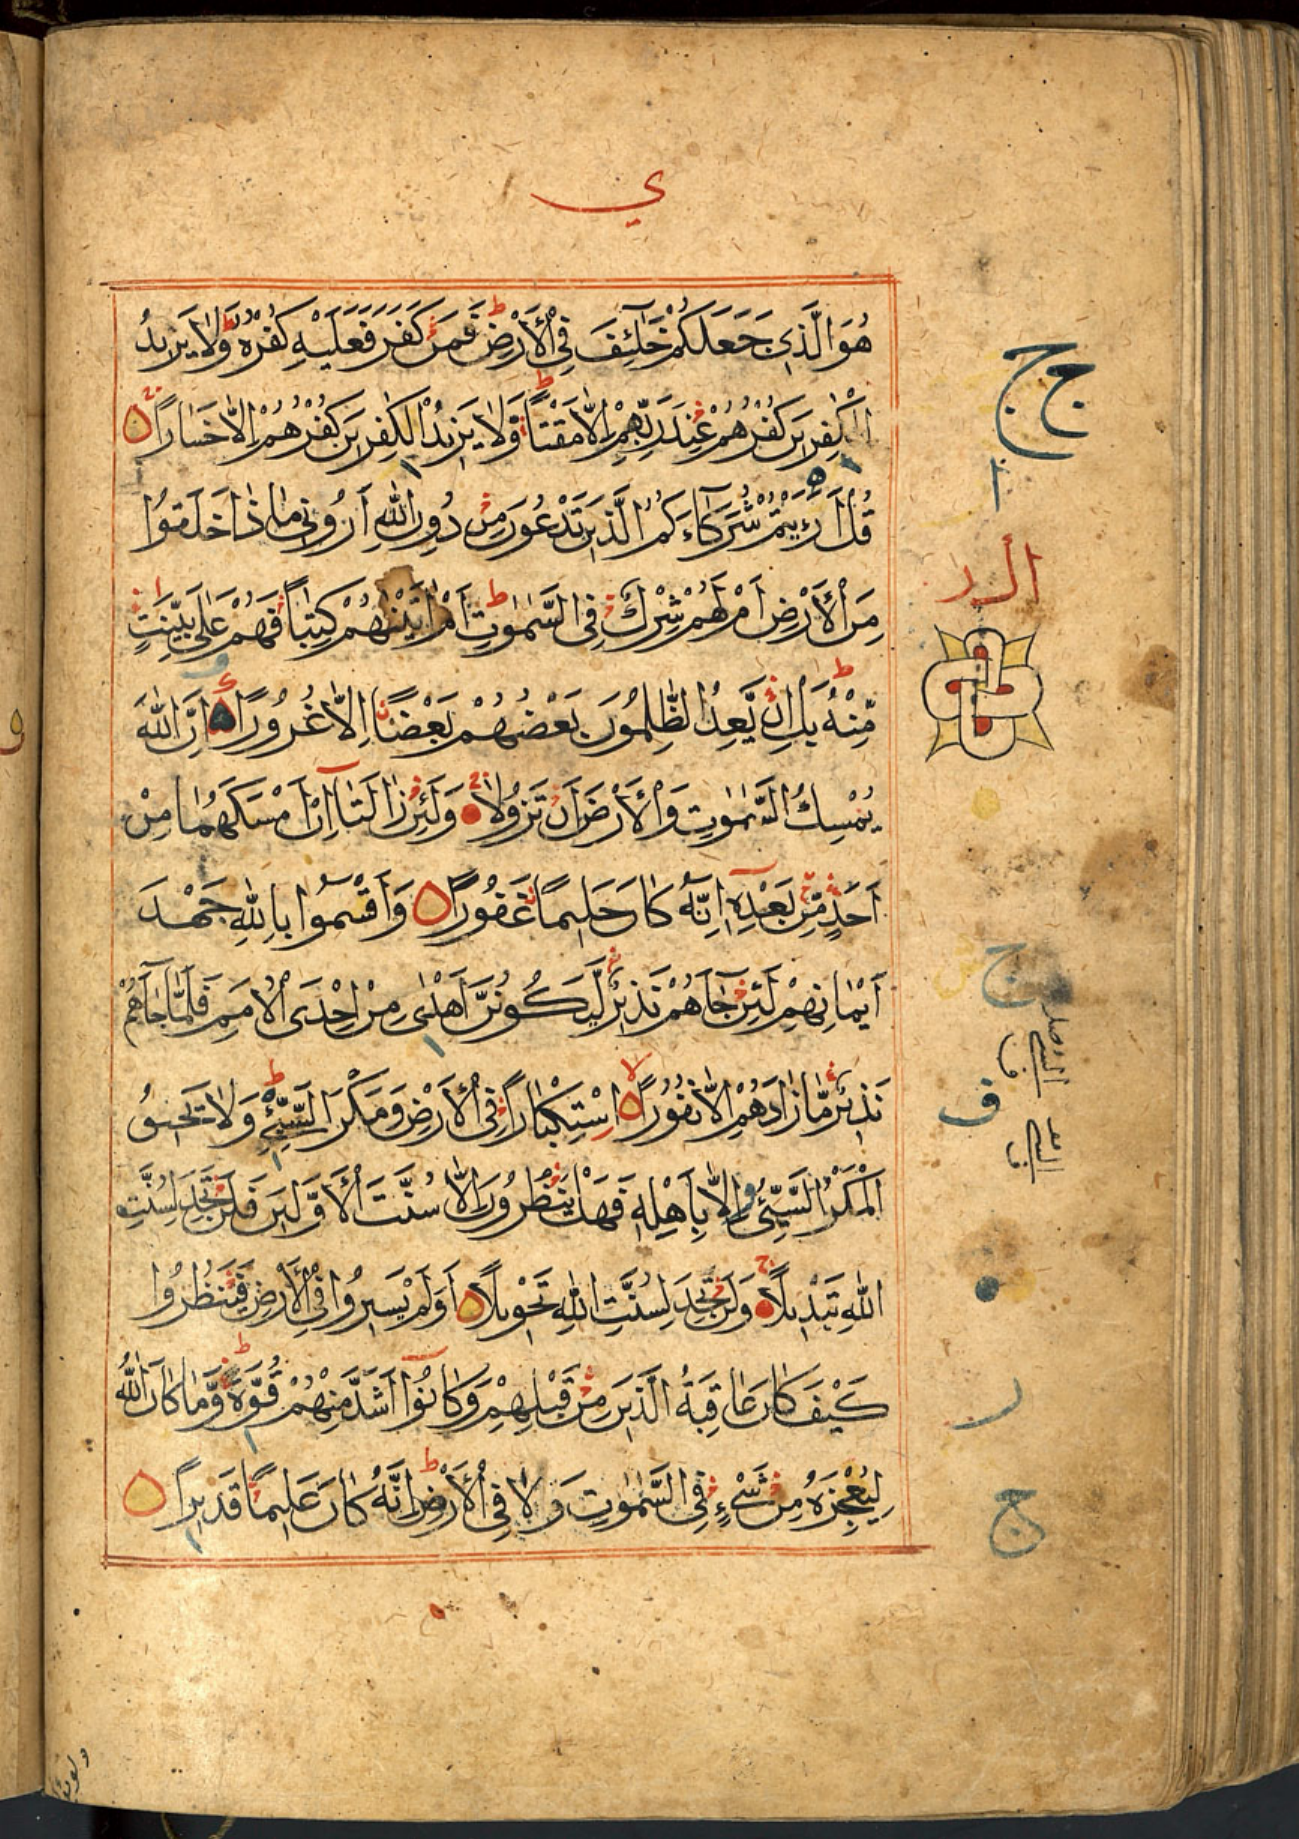 ي
هُوَ الَّذِي جَعَلَكُمْ خَلَٰٓئِفَ فِي الْأَرْضِ ط فَمَنْ كَفَرَ فَعَلَيْهِ كُفْرُهُ ط وَلَا يَزِيدُ
الْكَٰفِرِينَ كُفْرُهُمْ عِنْدَ رَبِّهِمْ إِلَّا مَقْتًا ط وَلَا يَزِيدُ الْكَٰفِرِينَ كُفْرُهُمْ إِلَّا خَسَارًا
قُلْ أَرَءَيْتُمْ شُرَكَآءَكُمُ الَّذِينَ تَدْعُونَ مِنْ دُونِ اللّٰهِ أَرُونِي مَاذَا خَلَقُوا
مِنَ الْأَرْضِ أَمْ لَهُمْ شِرْكٌ فِي السَّمٰوٰتِ ط أَمْ اٰتَيْنٰهُمْ كِتٰبًا فَهُمْ عَلٰى بَيِّنَتٍ
مِّنْهُ ط بَلْ إِنْ يَّعِدُ الظّٰلِمُونَ بَعْضُهُمْ بَعْضًا إِلَّا غُرُورًا إِنَّ اللّٰهَ
يُمْسِكُ السَّمٰوٰتِ وَالْأَرْضَ أَنْ تَزُولَا وَلَئِنْ زَالَتَآ إِنْ أَمْسَكَهُمَا مِنْ
أَحَدٍ مِّنْ بَعْدِهِ إِنَّهُ كَانَ حَلِيمًا غَفُورًا وَأَقْسَمُوا بِاللّٰهِ جَهْدَ
أَيْمَانِهِمْ لَئِنْ جَآءَهُمْ نَذِيرٌ لَّيَكُونُنَّ أَهْدٰى مِنْ إِحْدَى الْأُمَمِ فَلَمَّا جَآءَهُمْ
نَذِيرٌ مَّا زَادَهُمْ إِلَّا نُفُورًا لا اسْتِكْبَارًا فِي الْأَرْضِ وَمَكْرَ السَّيِّئِ ط وَلَا يَحِيقُ
الْمَكْرُ السَّيِّئُ إِلَّا بِأَهْلِهِ فَهَلْ يَنْظُرُونَ إِلَّا سُنَّتَ الْأَوَّلِينَ فَلَنْ تَجِدَ لِسُنَّتِ
اللّٰهِ تَبْدِيلًا ج وَلَنْ تَجِدَ لِسُنَّتِ اللّٰهِ تَحْوِيلًا أَوَلَمْ يَسِيرُوا فِي الْأَرْضِ فَيَنْظُرُوا
كَيْفَ كَانَ عَاقِبَةُ الَّذِينَ مِنْ قَبْلِهِمْ وَكَانُوٓا أَشَدَّ مِنْهُمْ قُوَّةً ط وَّمَا كَانَ اللّٰهُ
لِيُعْجِزَهُ مِنْ شَيْءٍ فِي السَّمٰوٰتِ وَلَا فِي الْأَرْضِ ط إِنَّهُ كَانَ عَلِيمًا قَدِيرًا
ج ج
ا
ج
ف
ر
ج